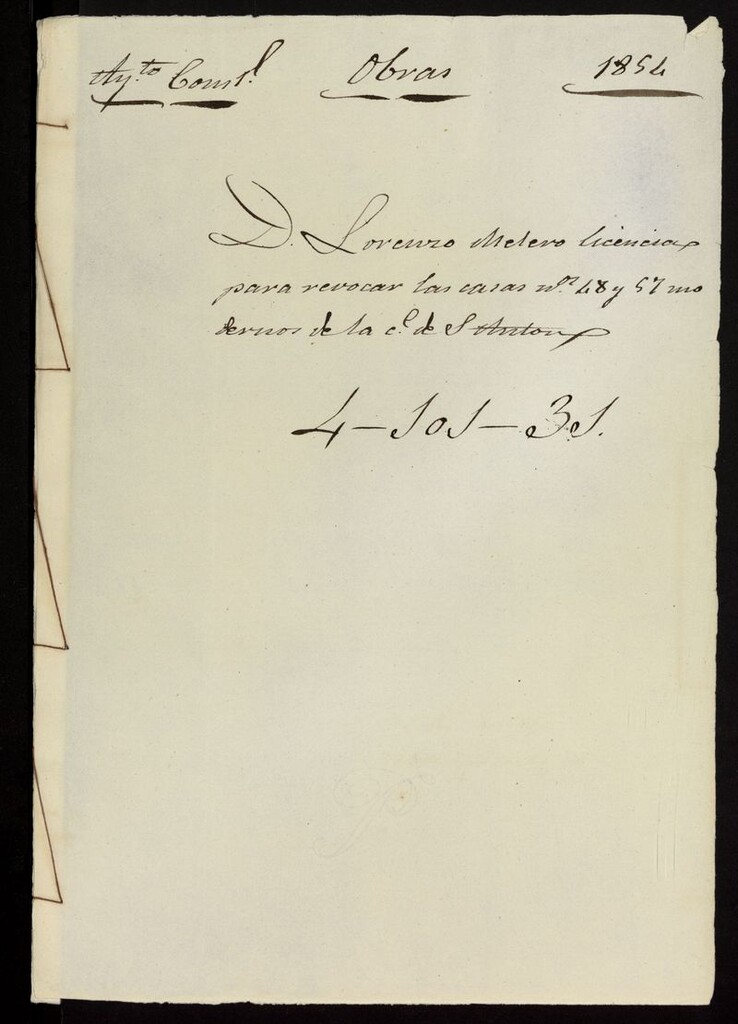 Ay.to Const.l Obras 1854
D. Lorenzo Melero licencia
para revocar las casas n.os 48 y 57 mo
dernos de la c.e de S Anton
4-101-31.